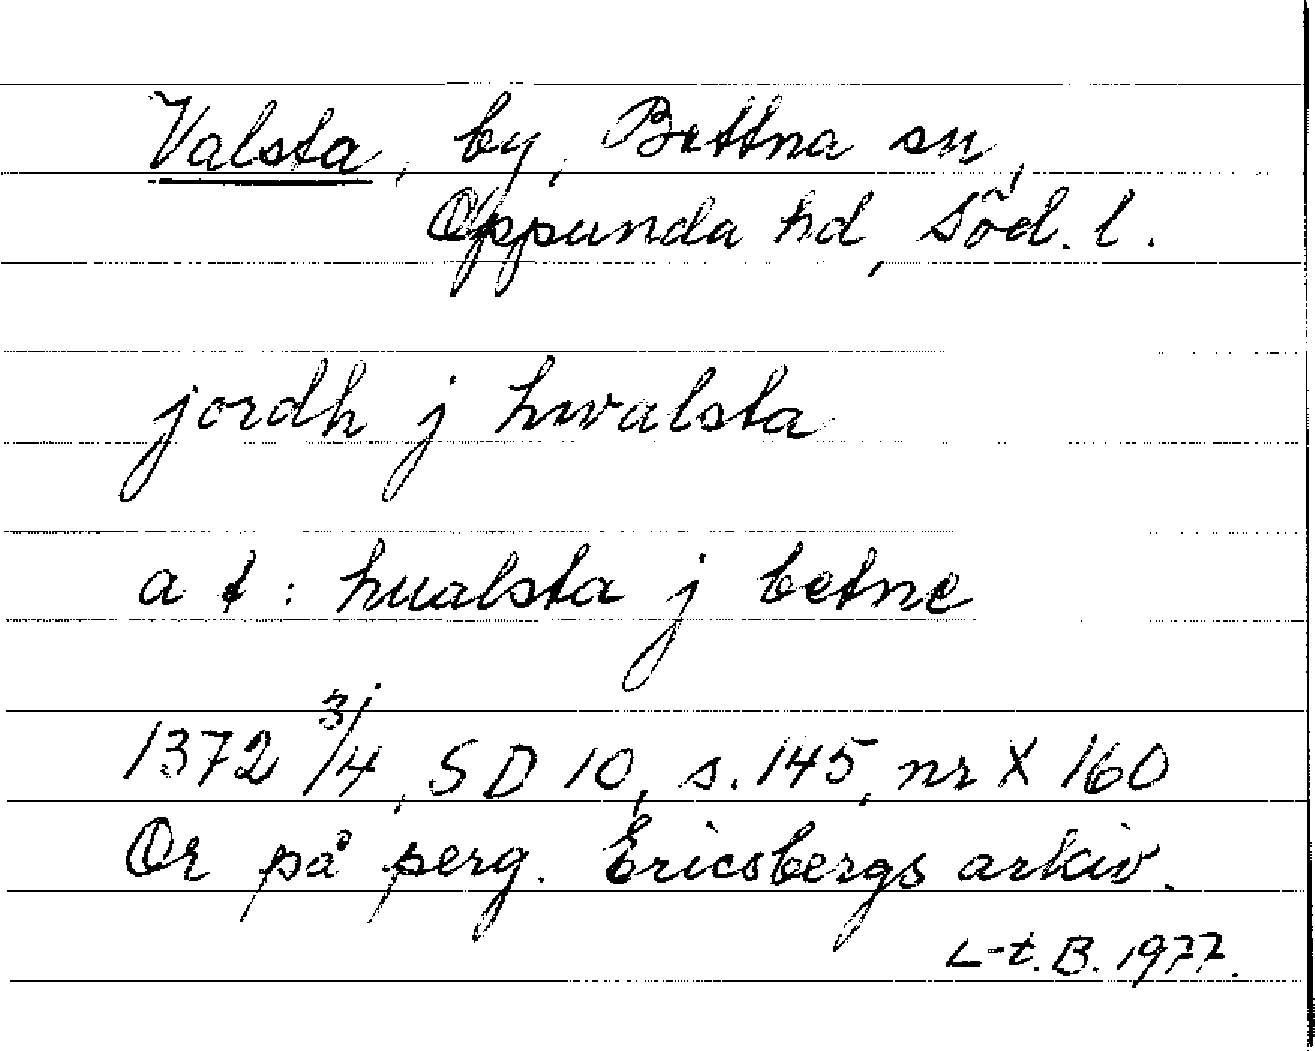 Valsta, by, Bettna sn,
Oppunda hd, Söd. l.
jordh j hwalsta
a t : hualsta j betne
1372 3/4, SD 10, s. 145, nr X 160
Or på perg. Ericsbergs arkiv.
L-t. B. 1977.